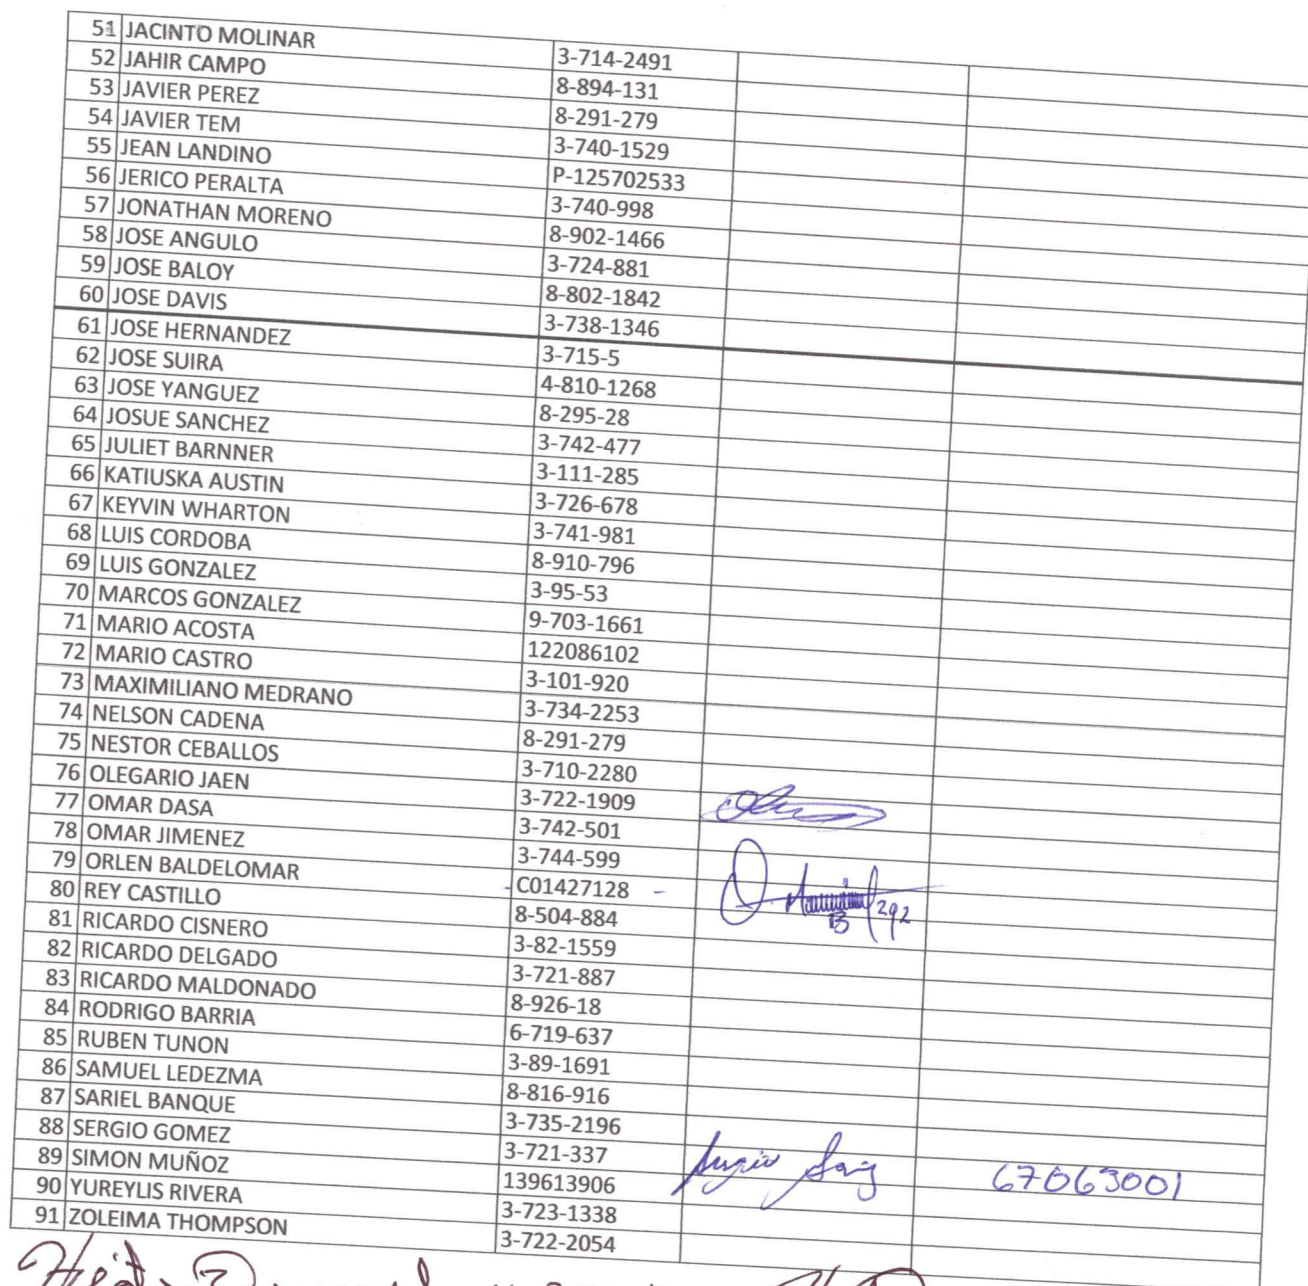 51 JACINTO MOLINAR 3-714-2491
52 JAHIR CAMPO 8-894-131
53 JAVIER PEREZ 8-291-279
54 JAVIER TEM 3-740-1529
55 JEAN LANDINO P-125702533
56 JERICO PERALTA 3-740-998
57 JONATHAN MORENO 8-902-1466
58 JOSE ANGULO 3-724-881
59 JOSE BALOY 8-802-1842
60 JOSE DAVIS 3-738-1346
61 JOSE HERNANDEZ 3-715-5
62 JOSE SUIRA 4-810-1268
63 JOSE YANGUEZ 8-295-28
64 JOSUE SANCHEZ 3-742-477
65 JULIET BARNNER 3-111-285
66 KATIUSKA AUSTIN 3-726-678
67 KEYVIN WHARTON 3-741-981
68 LUIS CORDOBA 8-910-796
69 LUIS GONZALEZ 3-95-53
70 MARCOS GONZALEZ 9-703-1661
71 MARIO ACOSTA 122086102
72 MARIO CASTRO 3-101-920
73 MAXIMILIANO MEDRANO 3-734-2253
74 NELSON CADENA 8-291-279
75 NESTOR CEBALLOS 3-710-2280
76 OLEGARIO JAEN 3-722-1909
77 OMAR DASA 3-742-501
78 OMAR JIMENEZ 3-744-599
79 ORLEN BALDELOMAR C01427128 292
80 REY CASTILLO 8-504-884
81 RICARDO CISNERO 3-82-1559
82 RICARDO DELGADO 3-721-887
83 RICARDO MALDONADO 8-926-18
84 RODRIGO BARRIA 6-719-637
85 RUBEN TUNON 3-89-1691
86 SAMUEL LEDEZMA 8-816-916
87 SARIEL BANQUE 3-735-2196
88 SERGIO GOMEZ 3-721-337 67063001
89 SIMON MUÑOZ 139613906
90 YUREYLIS RIVERA 3-723-1338
91 ZOLEIMA THOMPSON 3-722-2054